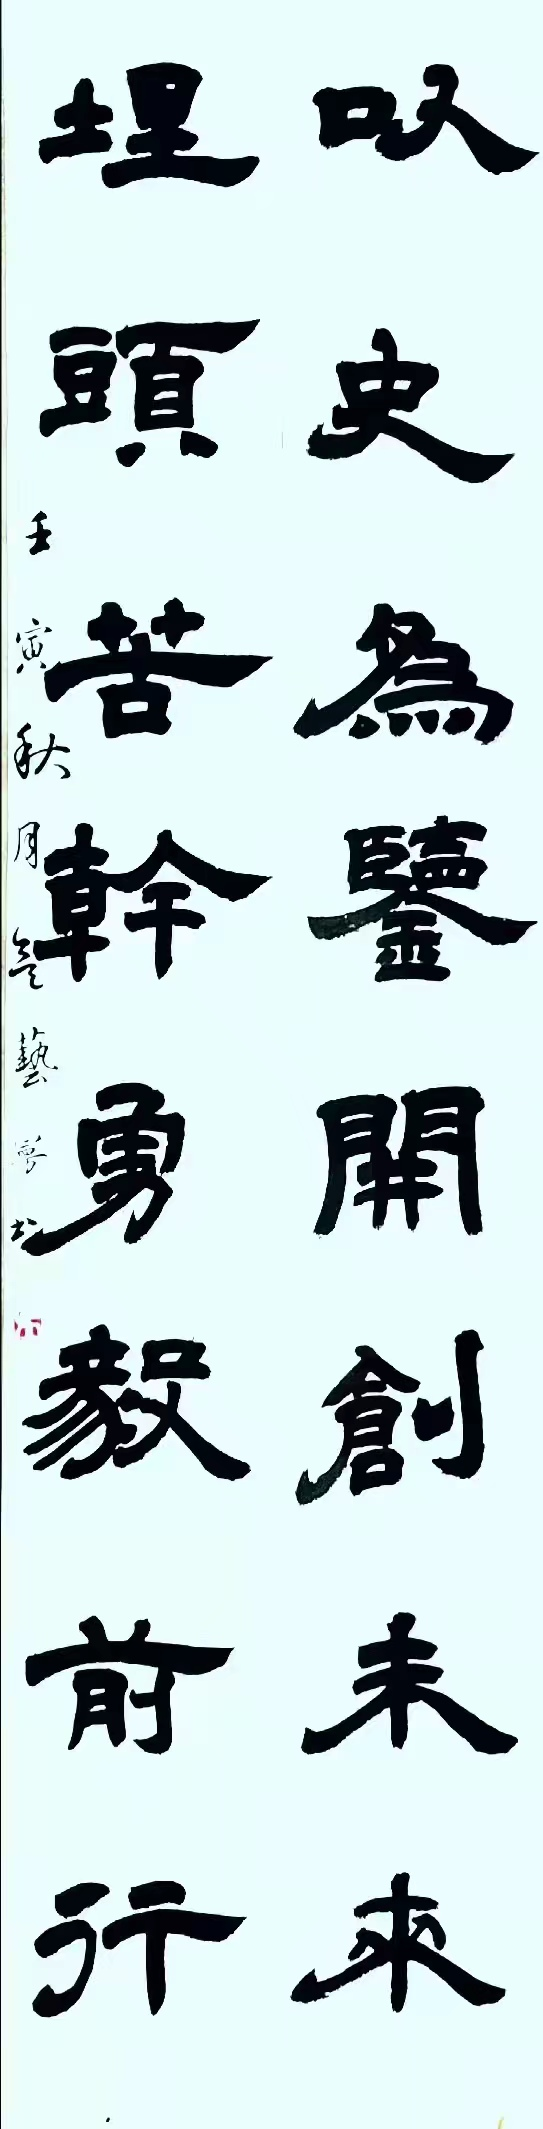 以史爲鑒開創未來
埋頭苦幹勇毅前行
壬寅秋月 藝 書